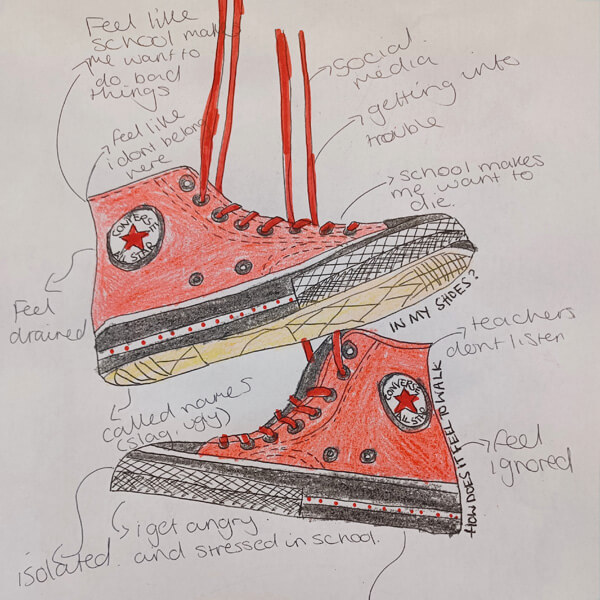 Feel like
school make
me want to
do bad
things
feel like
i dont belong
here
social
media
getting into
trouble
school makes
me want to
die.
CONVERSE
ALL STAR
Feel
drained
IN MY SHOES?
teachers
dont listen
called names
(slag, ugly)
CONVERSE
ALL STAR
HOW DOES IT FEEL TO WALK
feel
ignored
isolated.
i get angry
and stressed in school.